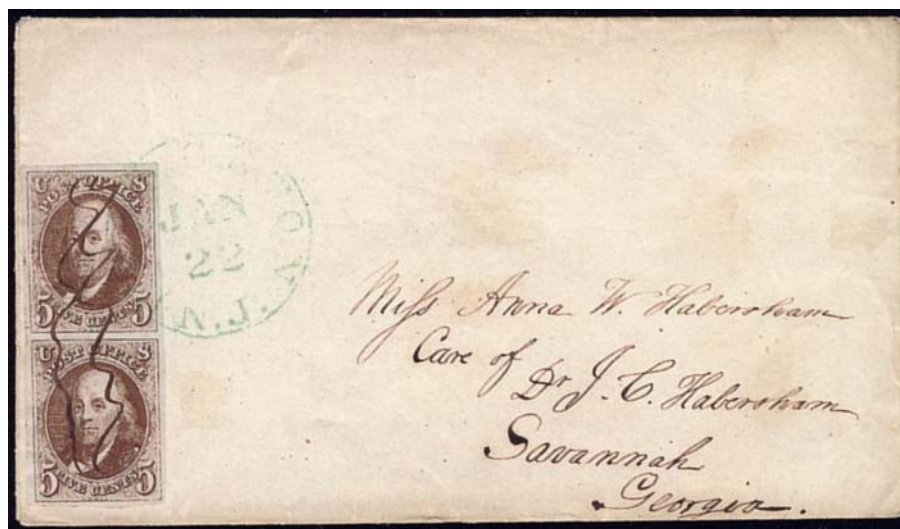 U S
POST OFFICE
5 FIVE CENTS 5
U S
POST OFFICE
5 FIVE CENTS 5
JAN
22
N.J.
Miss Anna W. Habersham
Care of
Dr J. C. Habersham
Savannah
Georgia.